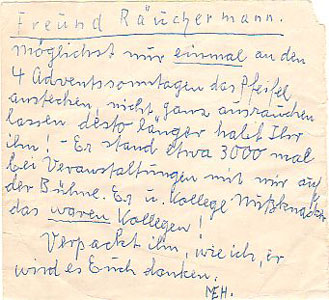 Freund Räuchermann.
möglichst nur einmal an den
4 Adventssonntagen das Pfeifel
anstecken, nicht ganz ausrauchen
lassen desto länger habt Ihr
ihn! - Er stand etwa 3000 mal
bei Veranstaltungen mit mir auf
der Bühne. Er u. Kollege Nußknacker
das waren Kollegen!
Verpackt ihn, wie ich, er
wird es Euch danken.
MEH.